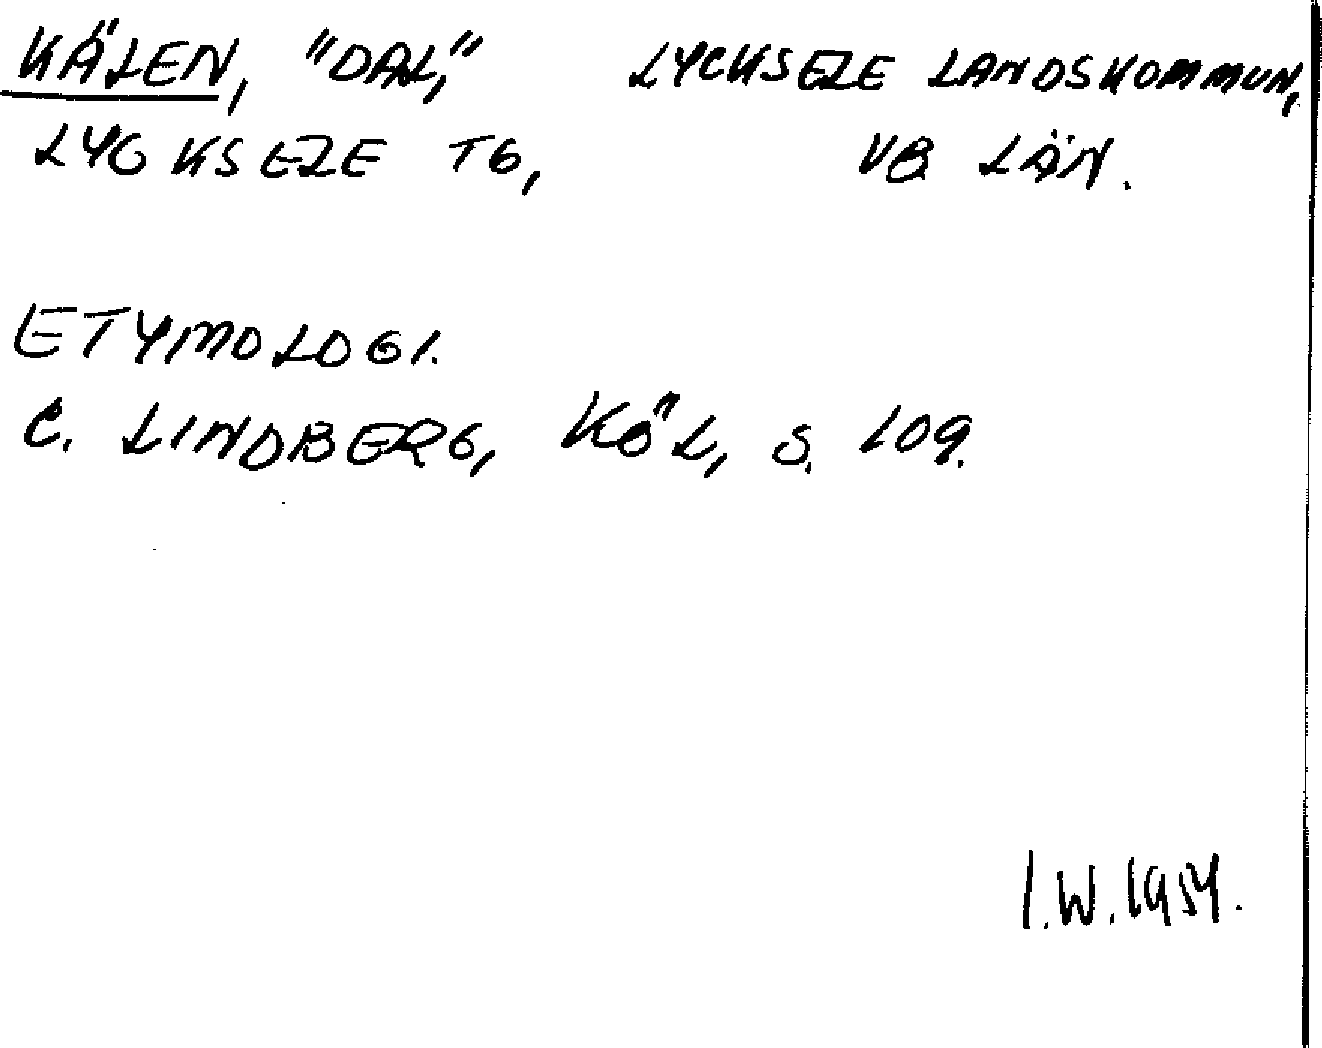 KÄLEN, "DAL," LYCKSELE LANDSKOMMUN,
LYCKSELE TG, VB LÄN.
ETYMOLOGI.
C. LINDBERG, KÖL, S. 109.
I.W. 1954.